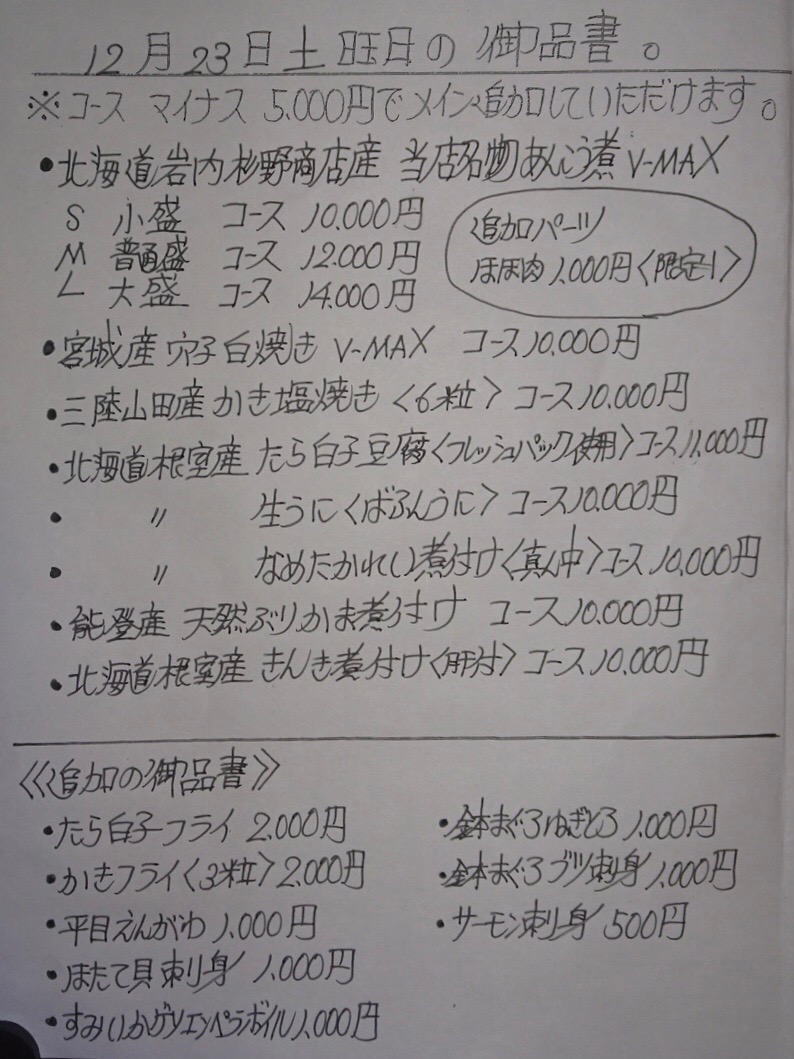 12月23日土曜日の御品書。
※コース マイナス 5.000円でメイン追加していただけます。
•北海道岩内杉野商店産 当店名物あんこう煮 V-MAX
S 小盛 コース 10.000円
M 普通盛 コース 12.000円
L 大盛 コース 14.000円
追加パーツ
ほほ肉 1.000円〈限定1〉
•宮城産 穴子白焼き V-MAX コース10.000円
•三陸山田産かき塩焼き〈6粒〉コース10.000円
•北海道根室産 たら白子豆腐〈フレッシュパック使用〉コース11.000円
• 〃 生うに〈ばふんうに〉コース10.000円
• 〃 なめたかれい煮付け〈真ん中〉コース10.000円
•能登産 天然ぶりかま煮付け コース10.000円
•北海道根室産 きんき煮付け〈肝付〉コース10.000円
《追加の御品書》
•たら白子フライ 2.000円
•かきフライ〈3粒〉2.000円
•平目えんがわ 1.000円
•ほたて貝刺身 1.000円
•すみいかゲソエンペラボイル1.000円
•鉢まぐろねぎとろ 1.000円
•鉢まぐろブツ刺身 1.000円
•サーモン刺身 500円